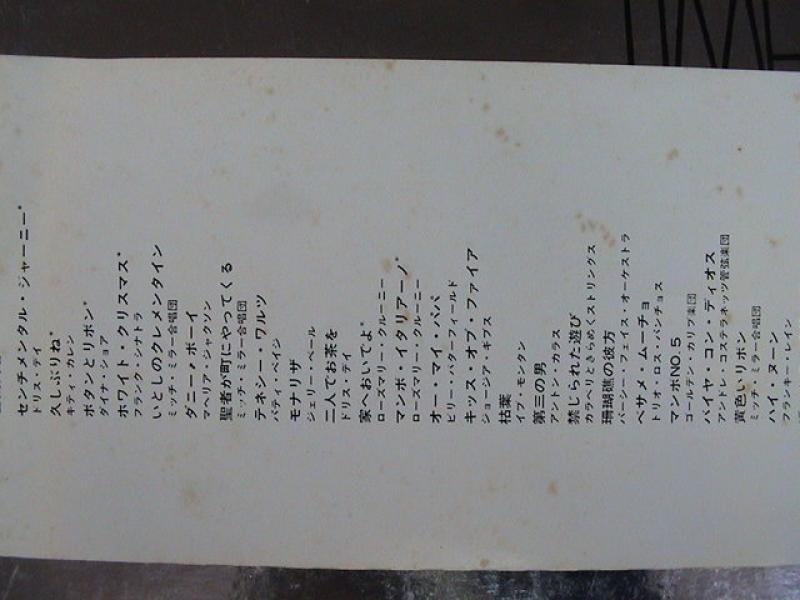 センチメンタル・ジャーニー*
ドリス・デイ
久しぶりね*
キティ・カレン
ボタンとリボン*
ダイナ・ショア
ホワイト・クリスマス*
フランク・シナトラ
いとしのクレメンタイン
ミッチ・ミラー合唱団
ダニー・ボーイ
マヘリア・ジャクソン
聖者が町にやってくる
ミッチ・ミラー合唱団
テネシー・ワルツ
パティ・ペイジ
モナリザ
ジェリー・ベール
二人でお茶を
ドリス・デイ
家へおいでよ*
ローズマリー・クルーニー
マンボ・イタリアーノ*
ローズマリー・クルーニー
オー・マイ・パパ
ビリー・バターフィールド
キッス・オブ・ファイア
ジョージア・ギブス
枯葉
イブ・モンタン
第三の男
アントン・カラス
禁じられた遊び
カラベリときらめくストリングス
珊瑚礁の彼方
パーシー・フェイス・オーケストラ
ベサメ・ムーチョ
トリオ・ロス・パンチョス
マンボNO.5
ゴールデン・カリブ楽団
バイヤ・コン・ディオス
アンドレ・コステラネッツ管弦楽団
黄色いリボン
ミッチ・ミラー合唱団
ハイ・ヌーン
フランキー・レイン